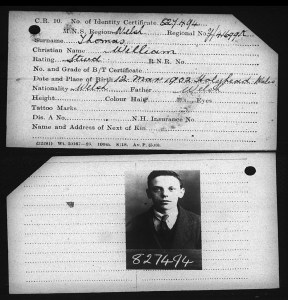 C.R. 10. No. of Identity Certificate.
M.N.S. Region Welsh Regional No.
Surname Thomas
Christian Name William
Rating. Stwd R.N.R. No.
No. and Grade of B/T Certificate.
Date and Place of Birth 12 Mar. 1902 Holyhead
Nationality Welsh Father Welsh
Height. Colour Hair Eyes
Tattoo Marks
Dis. A No. N.H. Insurance No.
Name and Address of Next of Kin
827494